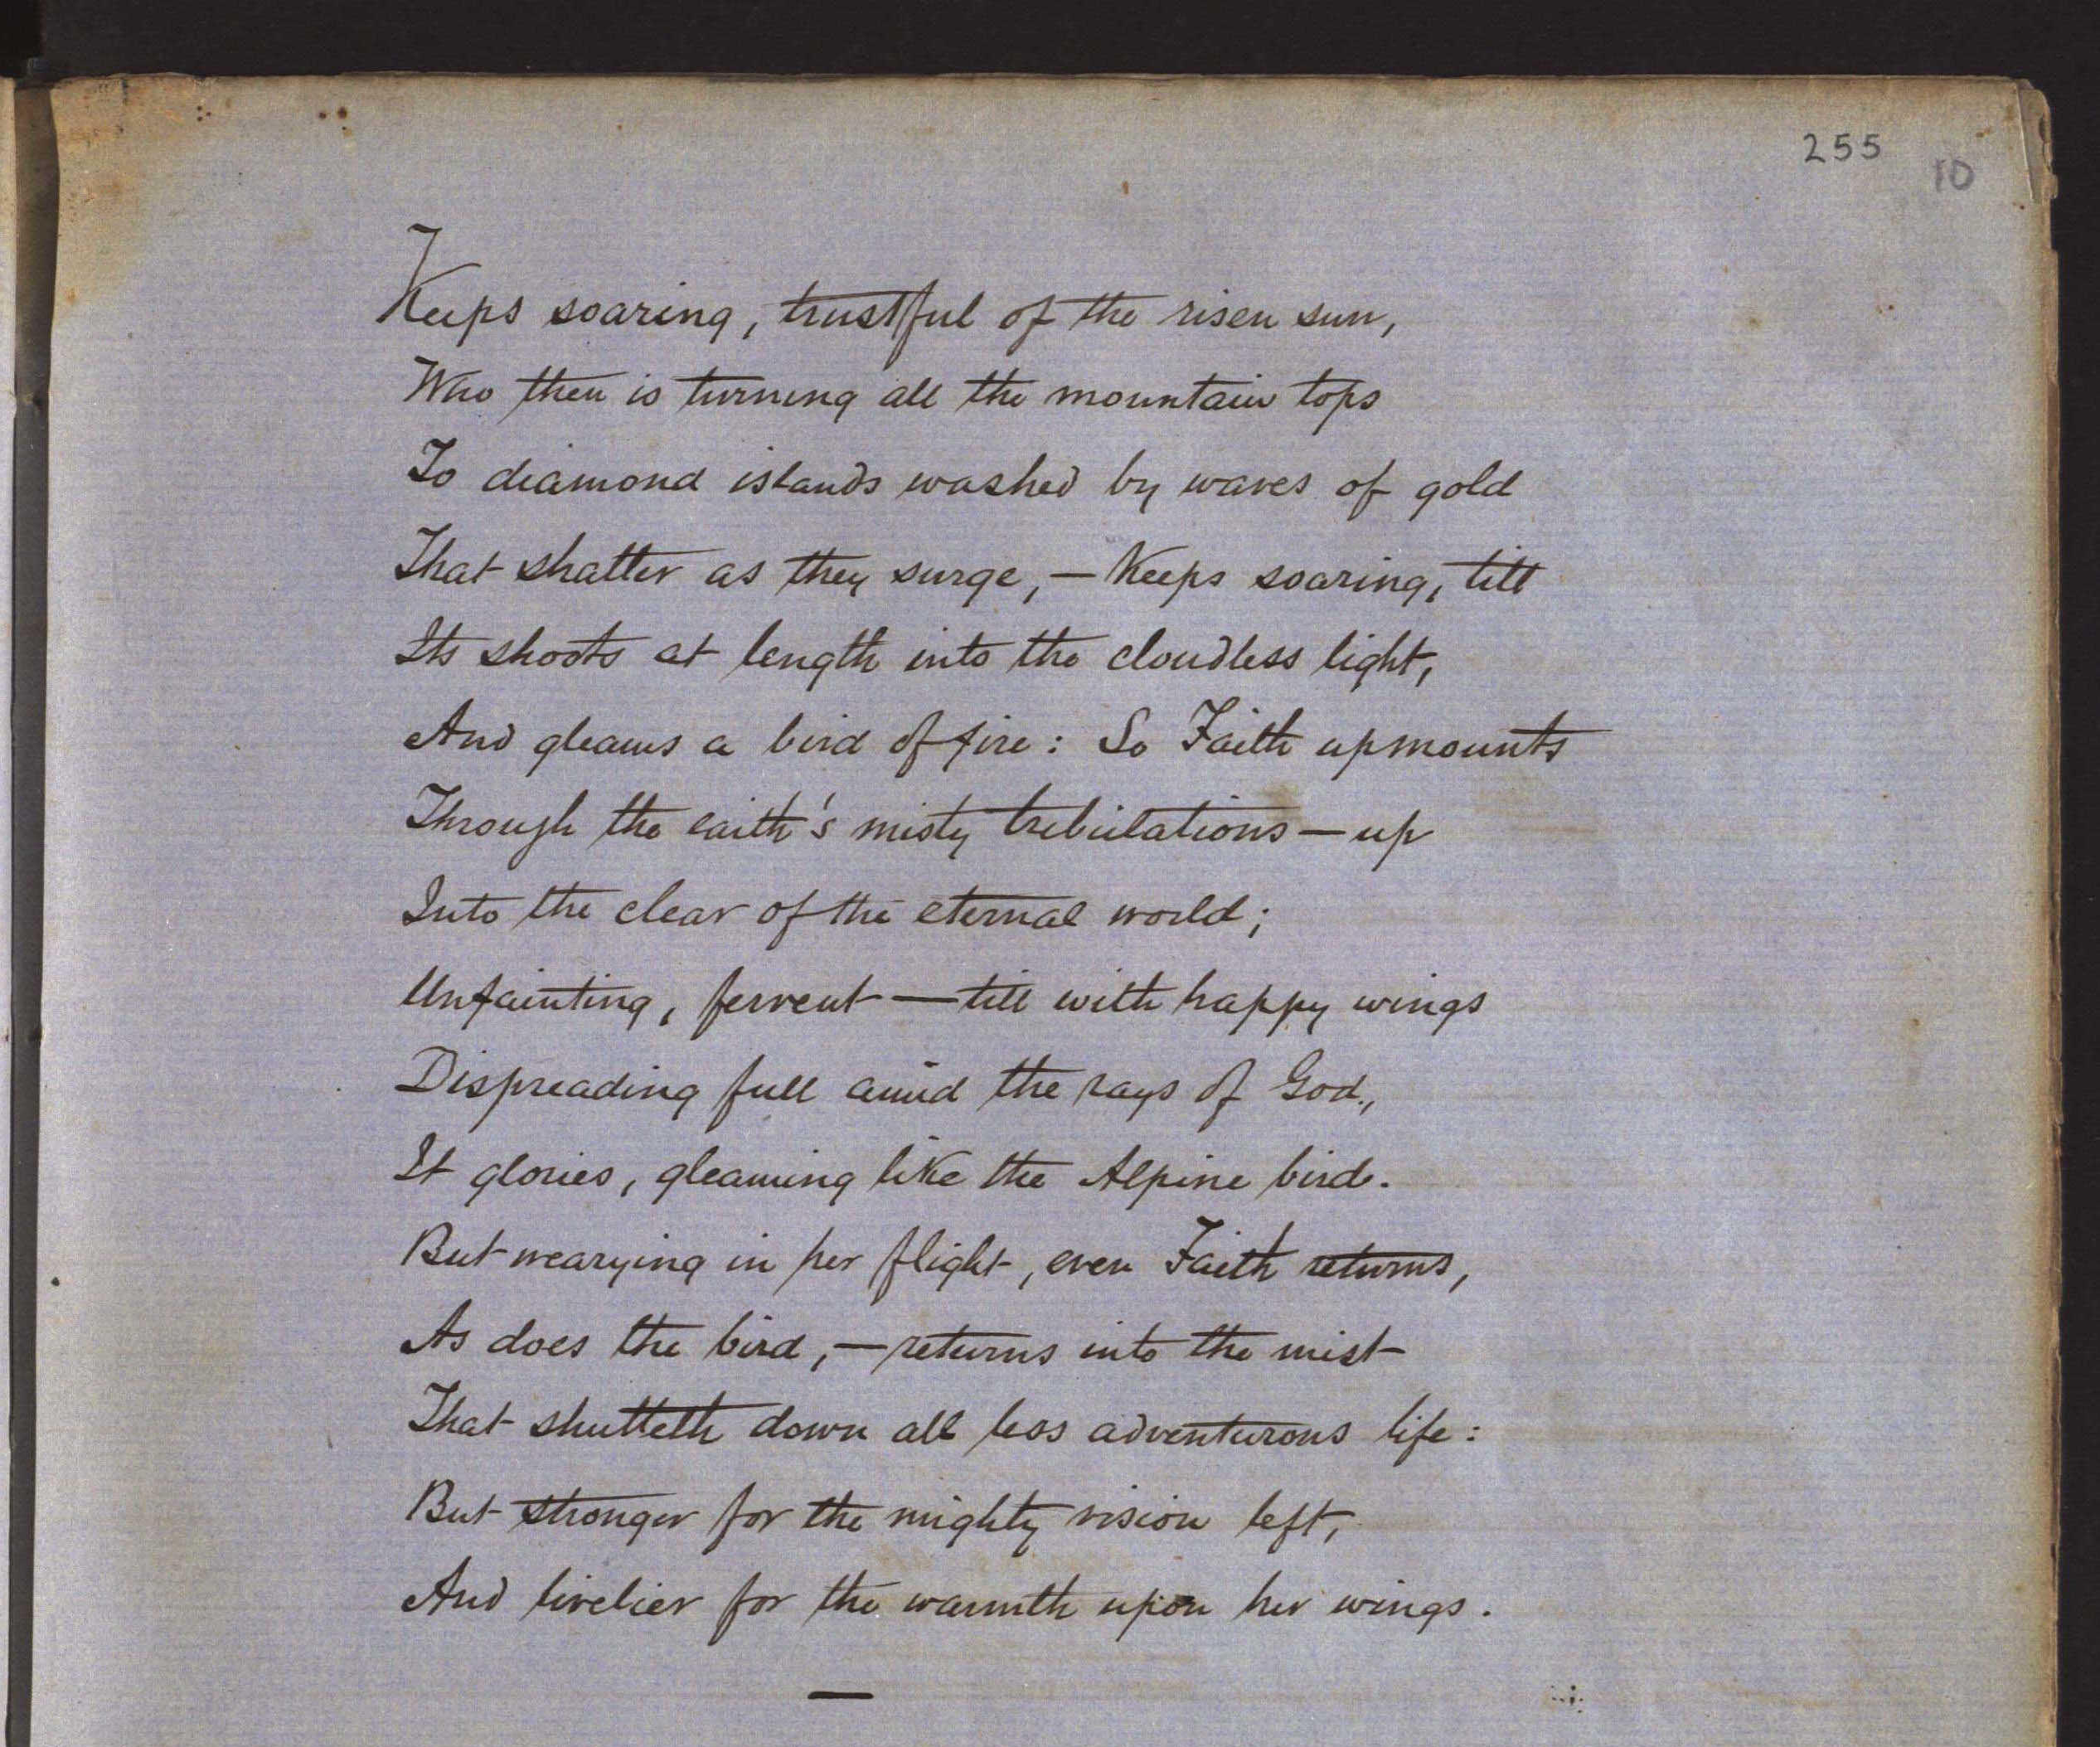 255
10
Keeps soaring, trustful of the risen sun,
Who then is turning all the mountain tops
To diamond islands washed by waves of gold
That shatter as they surge, — Keeps soaring, till
Its shoots at length into the cloudless light,
And gleams a bird of fire: So Faith upmounts
Through the earth's misty tribulations — up
Into the clear of the eternal world;
Unfainting, fervent — till with happy wings
Dispreading full amid the rays of God.,
It glories, gleaming like the Alpine bird.
But wearying in her flight, even Faith returns,
As does the bird, — returns into the mist
That shutteth down all less adventurous life:
But stronger for the mighty vision left,
And livelier for the warmth upon her wings.
—